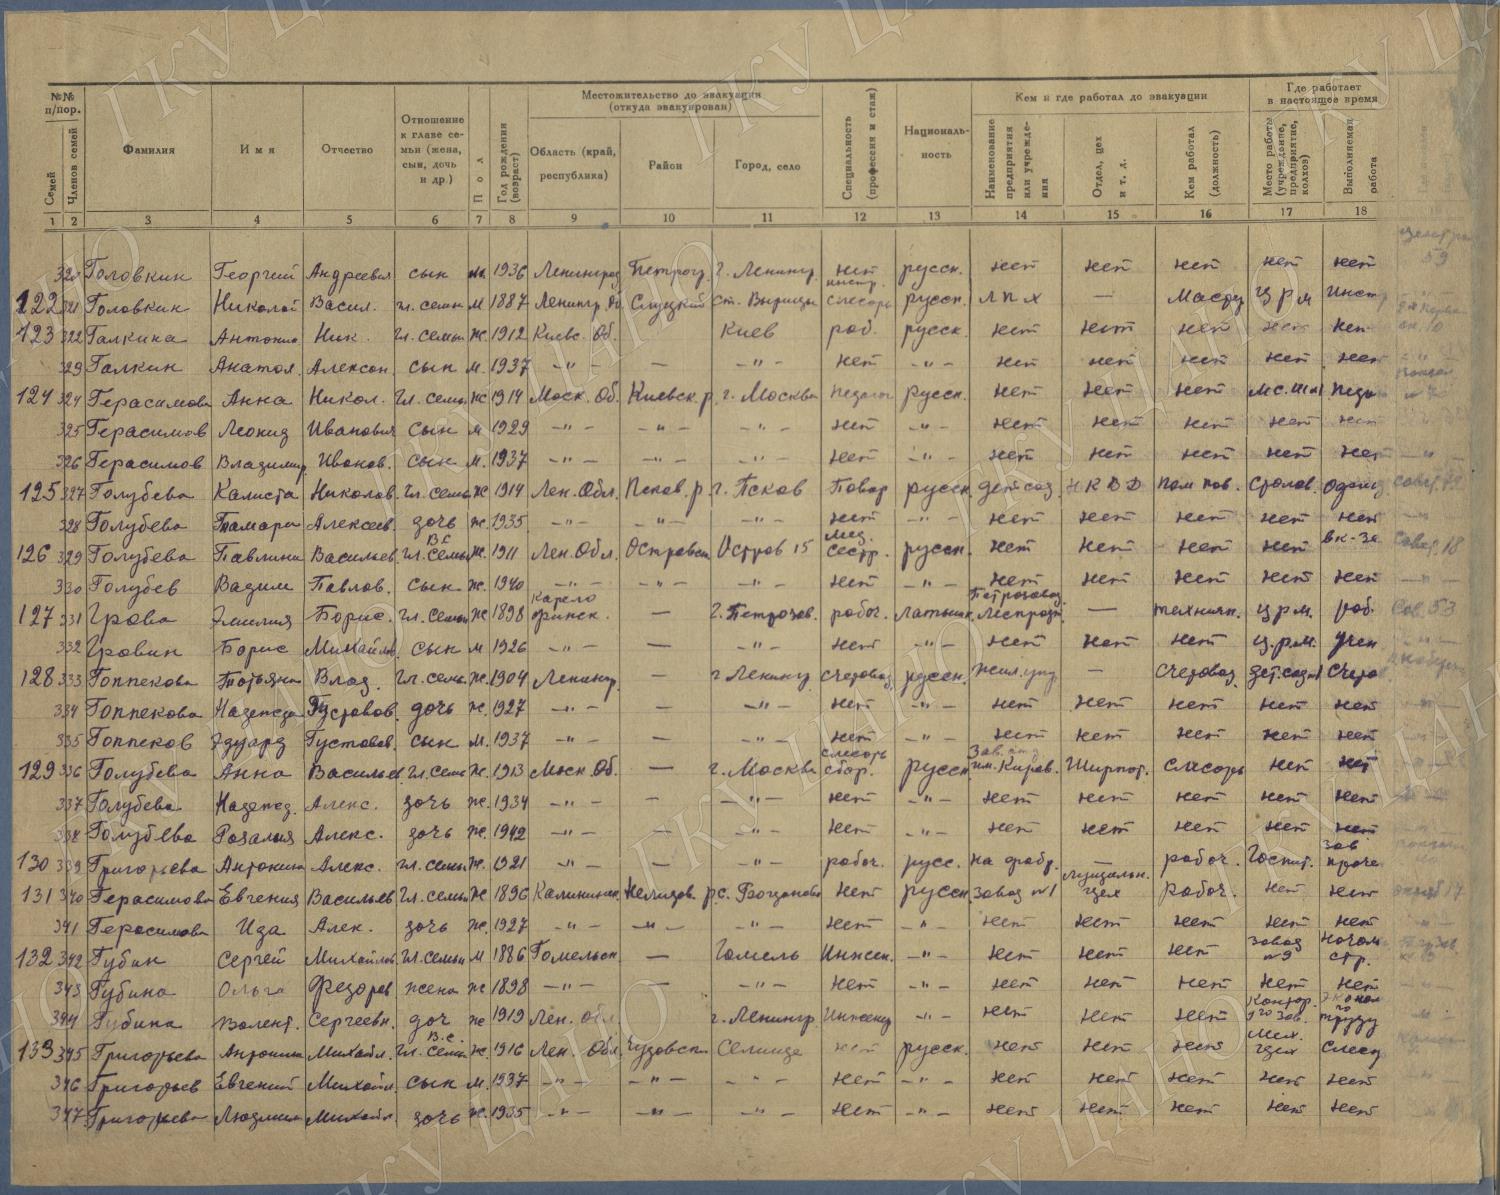 №№ п/пор. Местожительство до эвакуации (откуда эвакуирован) Кем и где работал до эвакуации Где работает в настоящее время
Семей Членов семей Фамилия Имя Отчество Отношение к главе семьи (жена, сын, дочь и др.) Пол Год рождения (возраст) Область (край, республика) Район Город, село Специальность (профессия и стаж) Националь-ность Наименование предприятия или учрежде-ния Отдел, цех и т. д. Кем работал (должность) Место работы (учреждение, предприятие, колхоз) Выполняемая работа
1 2 3 4 5 6 7 8 9 10 11 12 13 14 15 16 17 18
320 Головкин Георгий Андреевич сын м. 1936 Ленинград Петрогр. г. Ленингр. нет русск. нет нет нет нет нет 59
122 321 Головкин Николай Васил. гл. семьи м 1887 Ленингр. Об Слуцкий ст. Вырицы инстр. слесарь русск. ЛПХ — Ц.Р.М Инст
123 322 Галкина Антонина Ник. гл. семьи ж. 1912 Киевс. Об. Киев раб. русск. нет нет нет нет нет
323 Галкин Анатол. Алексан. сын м. 1937 –"– — –"– нет –"– нет нет нет нет нет
124 324 Герасимова Анна Никол. гл. семьи ж 1914 Моск. Об. Киевск. р. г. Москва педагог русск. нет нет нет педа
325 Герасимов Леонид Иванович сын м 1929 –"– –"– –"– нет –"– нет нет нет нет нет
326 Герасимов Владимир Иванов. сын м. 1937 –"– –"– –"– нет –"– нет нет нет нет нет
125 327 Голубева Калиста Николов. гл. семьи ж 1914 Лен. Обл. Псков. р. г. Псков Повар русск. дет сад НКВД пом пов. столов.
328 Голубева Тамара Алексеев. дочь ж. 1935 –"– –"– –"– нет –"– нет нет нет нет нет
126 329 Голубева Павлина Васильев. гл. семьи В.С ж. 1911 Лен. Обл. Островск Остров 15 мед. сестр. русск. нет нет нет нет 18
330 Голубев Вадим Павлов. сын ж. 1940 –"– –"– –"– нет –"– нет нет нет нет нет
127 331 Грова Эмилия Борис. гл. семьи ж 1898 Карело финск. — г. Петрозав. рабоч. латышк. Петрозавод. — техничк. ц.р.м. раб. Сов. 53
332 Гровин Борис Михайлов. сын м 1926 –"– — –"– нет –"– нет нет нет ц.р.м. учен
128 333 Гоппекова Татьяна Влад. гл. семьи ж. 1904 Ленингр. — г Ленингр счетовод русск. Жил. упр — счетовод. дет.сад №1 счето
334 Гоппекова Надежда Густавов. дочь ж. 1927 –"– — –"– нет –"– нет нет нет нет нет
335 Гоппеков Эдуард Густавов. сын м. 1937 –"– — –"– нет –"– нет нет нет нет нет
129 336 Голубева Анна Васильев. гл. семьи ж. 1913 Моск. Об. — г. Москва слесарь сбор. русск. Зав. им. Киров. Ширпот. слесарь нет нет
337 Голубева Надежд. Алекс. дочь ж. 1934 –"– — –"– нет –"– нет нет нет нет нет
338 Голубева Розалия Алекс. дочь ж. 1942 –"– — –"– нет –"– нет нет нет нет нет
130 339 Григорьева Антонина Алекс. гл. семьи ж. 1921 –"– — –"– рабоч. русс. на фабр. — рабоч. Госпит. Зав
131 340 Герасимова Евгения Васильев гл. семьи ж 1896 Калининск. Нелидов. р. с. Богданово нет русск. завод №1 цех рабоч. нет нет 17
341 Герасимова Ида Алек. дочь ж. 1927 –"– –"– –"– нет –"– нет нет нет нет нет
132 342 Губин Сергей Михайлов. гл. семьи м 1886 Гомельск. — Гомель Инжен. –"– нет нет нет завод №9 стр.
343 Губина Ольга Федоров жена ж 1898 –"– — –"– нет –"– нет нет нет нет нет
344 Губина Валент. Сергеевн. доч ж 1919 Лен. обл. г. Ленингр Инженер –"– нет нет нет Контор. труду
133 345 Григорьева Антонина Михайл. гл. семьи В.С. ж. 1916 Лен. Обл. Чудовск Селище нет русск. нет нет нет Мех. цех слеса
346 Григорьев Евгений Михайл. сын м. 1937 –"– –"– –"– нет –"– нет нет нет нет нет
347 Григорьева Людмила Михайл. дочь ж. 1935 –"– –"– –"– нет –"– нет нет нет нет нет
ГКУ ЦАНО